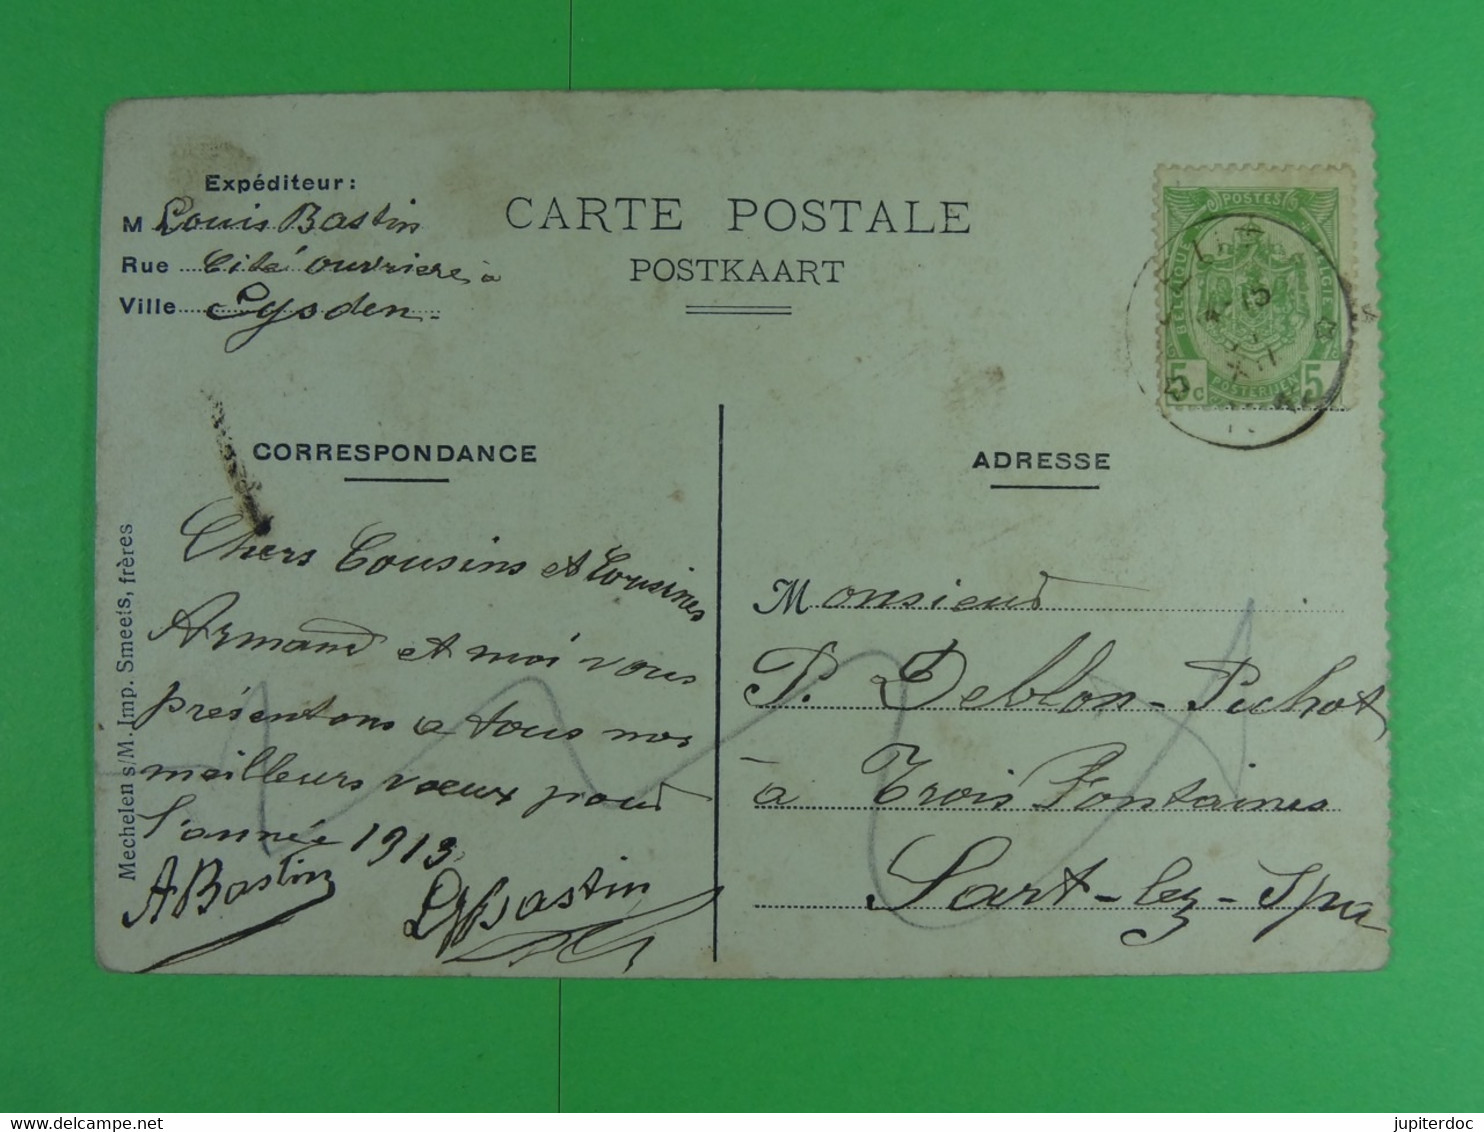 Expéditeur:
M Louis Bastin
Rue Cité ouvriere à
Ville Eysden
CARTE POSTALE
POSTKAART
POSTES
BELGIQUE
BELGIE
5 c
POSTERIJEN
5
CORRESPONDANCE
ADRESSE
Chers Cousins et Cousines
Armand et moi vous
présentons a tous nos
meilleurs vœux pour
l'année 1913
A Bastin
L Bastin
Monsieur
P. Deblon-Pichot
à Trois Fontaines
Sart-lez-Spa
Mechelen s/M. Imp. Smeets, frères
jupiterdoc